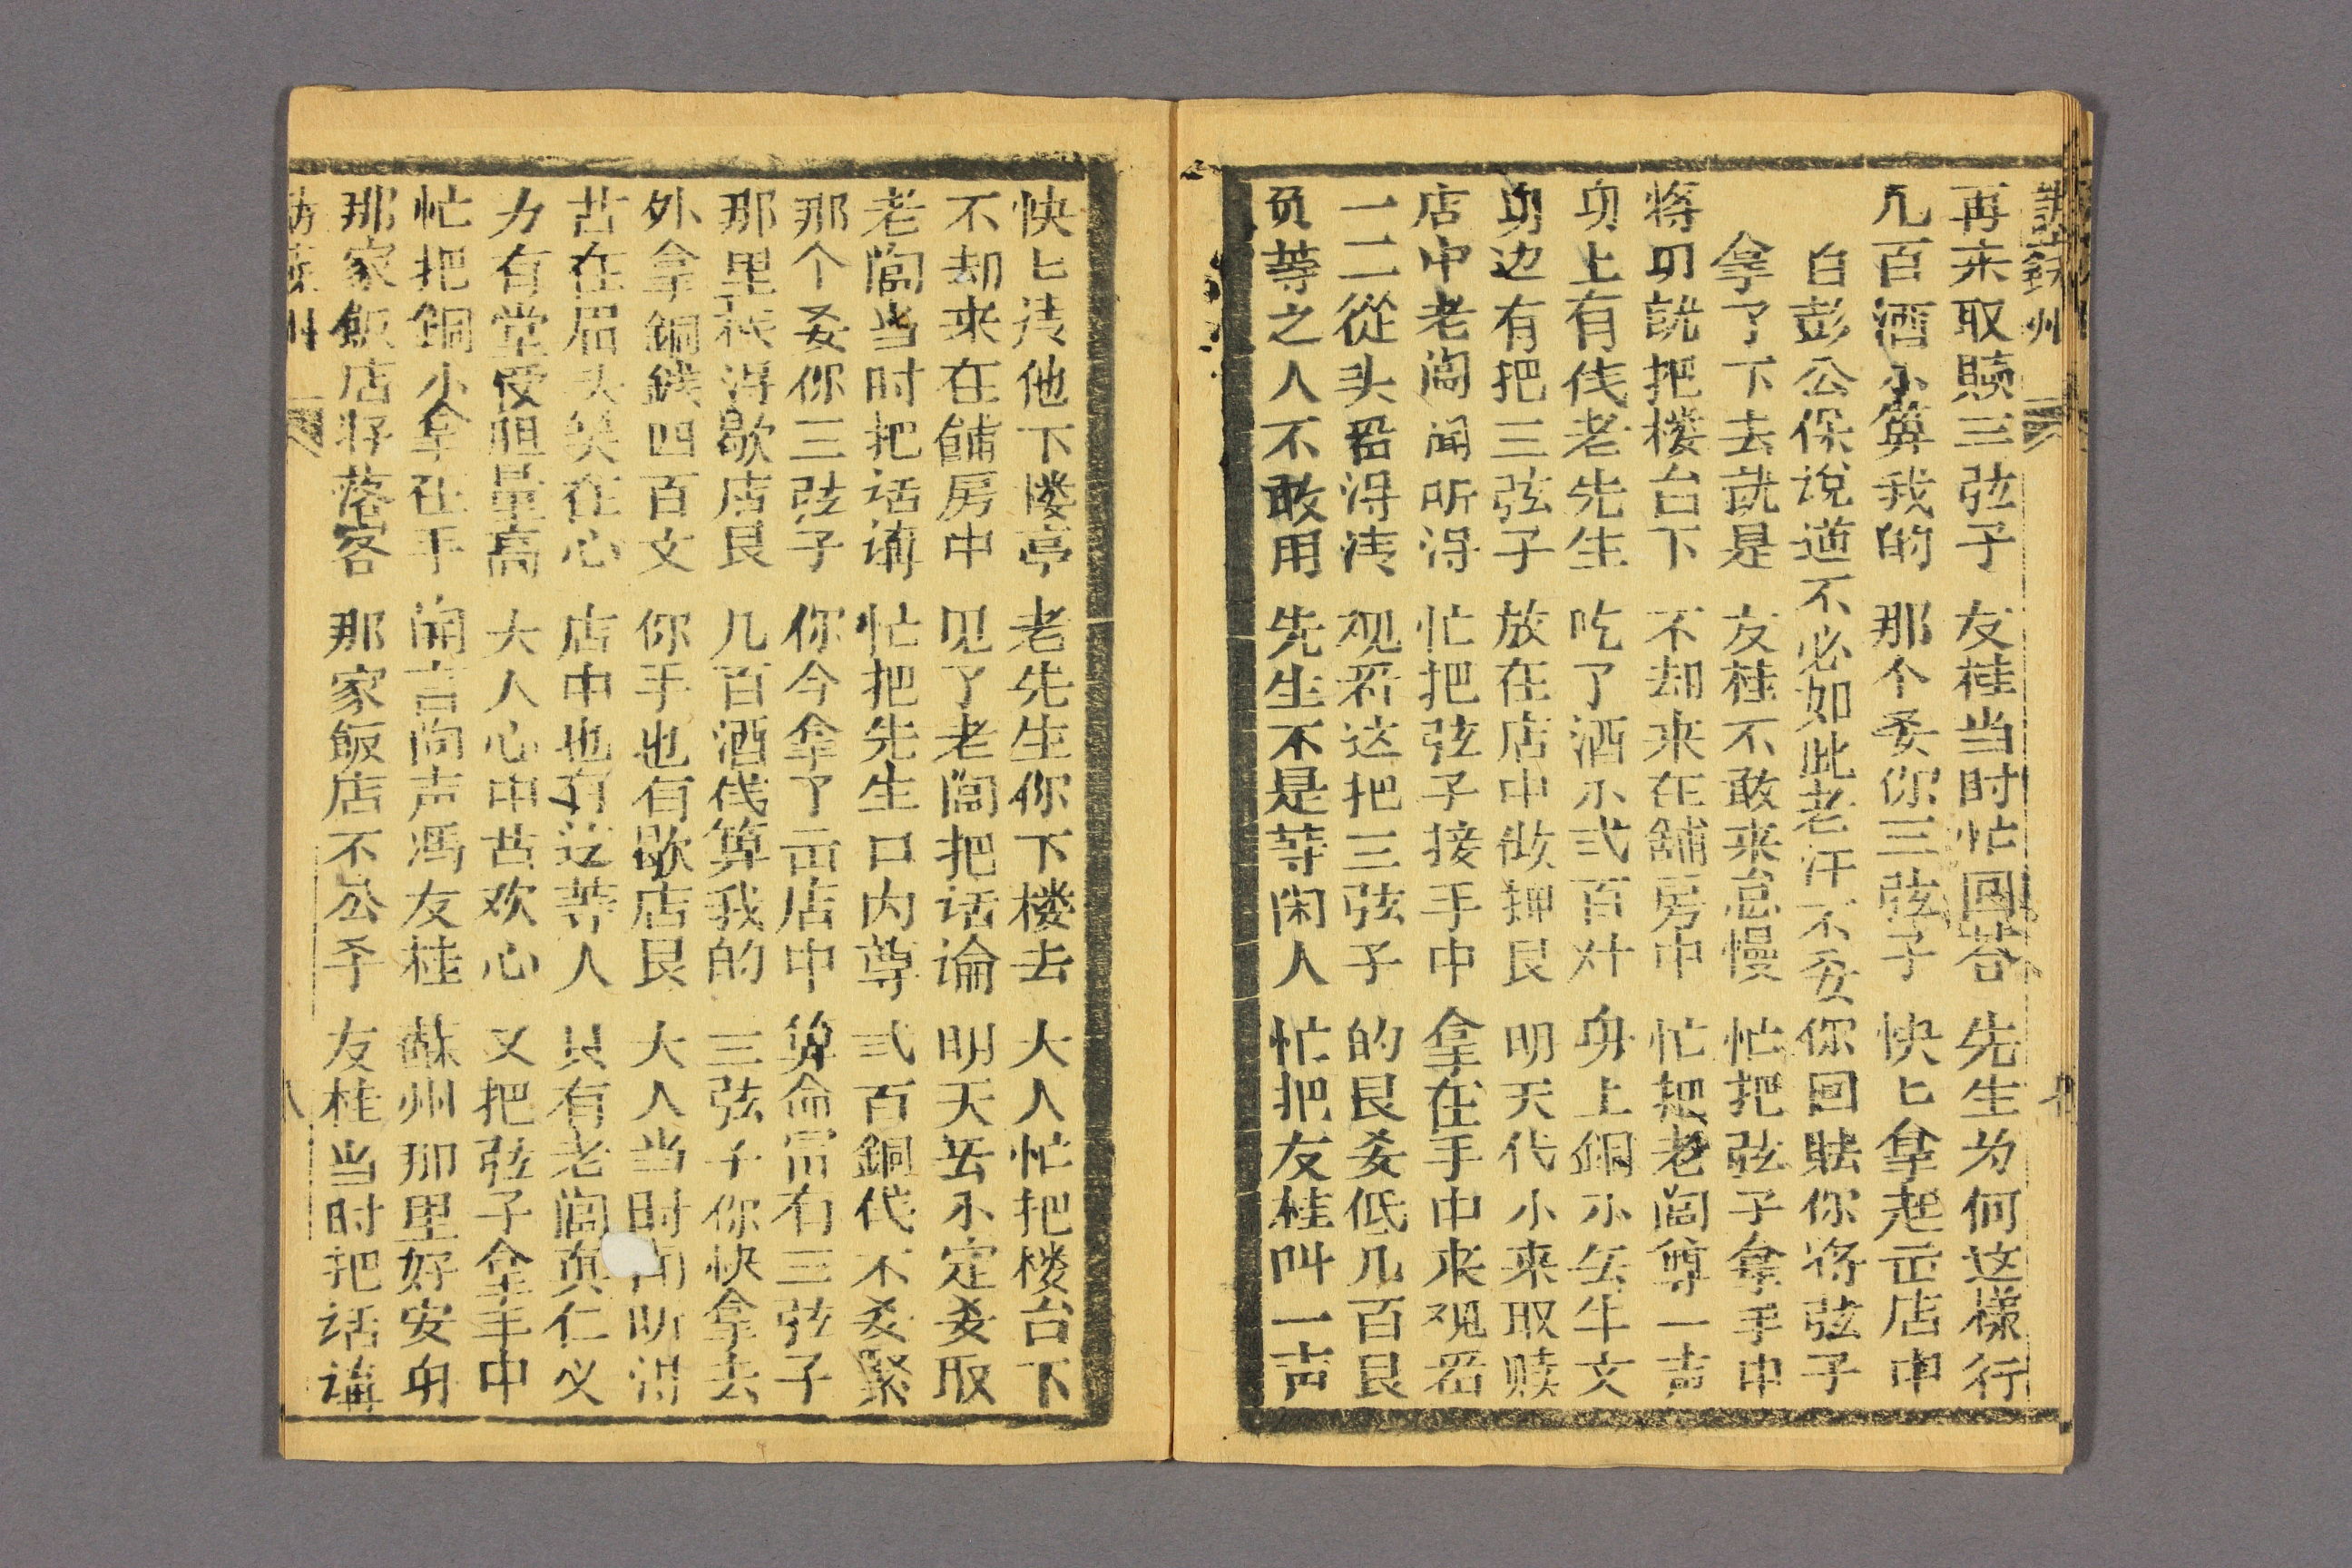 再来取贖三弦子 友桂当时忙回荅 先生为何这樣行
几百酒小算我的 那个爻你三弦子 快匕拿起正店中
白彭公保说道不必如此老汗不爻你回賍你将弦子
拿了下去就是 友桂不敢来怠慢 忙把弦子拿手中
将叨説把楼台下 不却来在舖房中 忙把老闾尊一声
上有伐老先生 吃了酒小弍百 上銅小牛文
边有把三弦子 放在店中做押艮 明天代小来取赎
店中老闾闻听淂 忙把弦子接手中 拿在手中来观
一二從头淂清 观这把三弦子 的艮爻低几百艮
负等之人不敢用 先生不是等闲人 忙把友桂叫一声
快匕清他下楼亭 老先生你下楼去 大人忙把楼台下
不却来在舖房中 见了老闾把话論 明天小定爻取
老闾当时把话講 忙把先生口内尊 弍百銅伐不爻緊
那个爻你三弦子 你今拿了店中 算命有三弦子
那里淂歇店艮 几百酒伐算我的 三弦子你快拿去
外拿銅錢四百文 你手也有歇店艮 大人当时听淂
苦在眉头笑在心 店中也有这等人 只有老闾真仁义
力有堂受胆量高 大人心中苦欢心 又把弦子拿手中
忙把銅小拿在手 闻言问声馮友桂 蘇州那里好安
那家飯店将落客 那家飯店不公平 友桂当时把话講
八